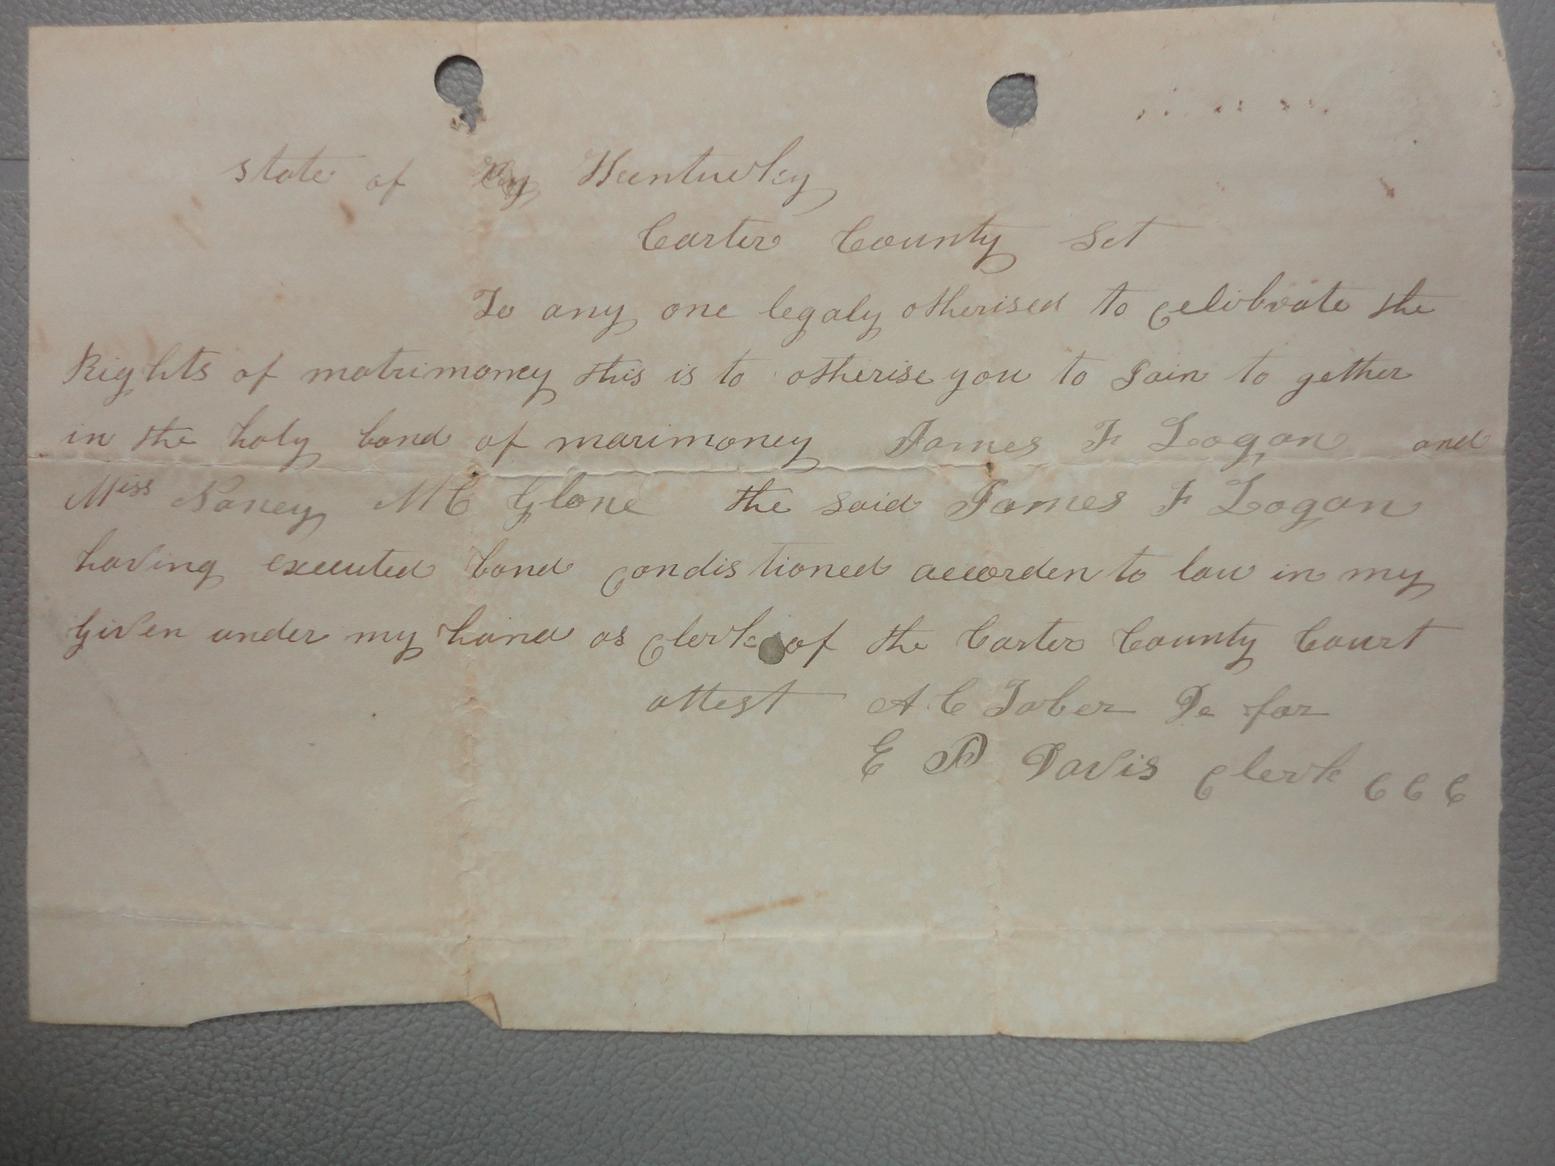 state of Ky Kentucky
Carter County Sct
To any one legaly otherised to celibrate the
Rights of matrimoney this is to otherise you to Join to gether
in the holy band of marimoney James F Logan and
Miss Nancy MC Glone the said James F Logan
having executed bond condistioned accorden to law in my
Given under my hand as clerk of the Carter County Court
attest A C Tober De for
E P Davis clerk C C C